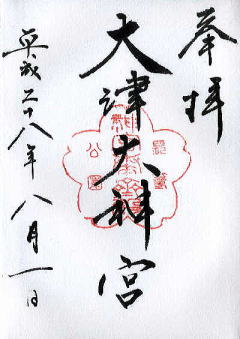 奉拝
大津大神宮
平成二十八年八月一日